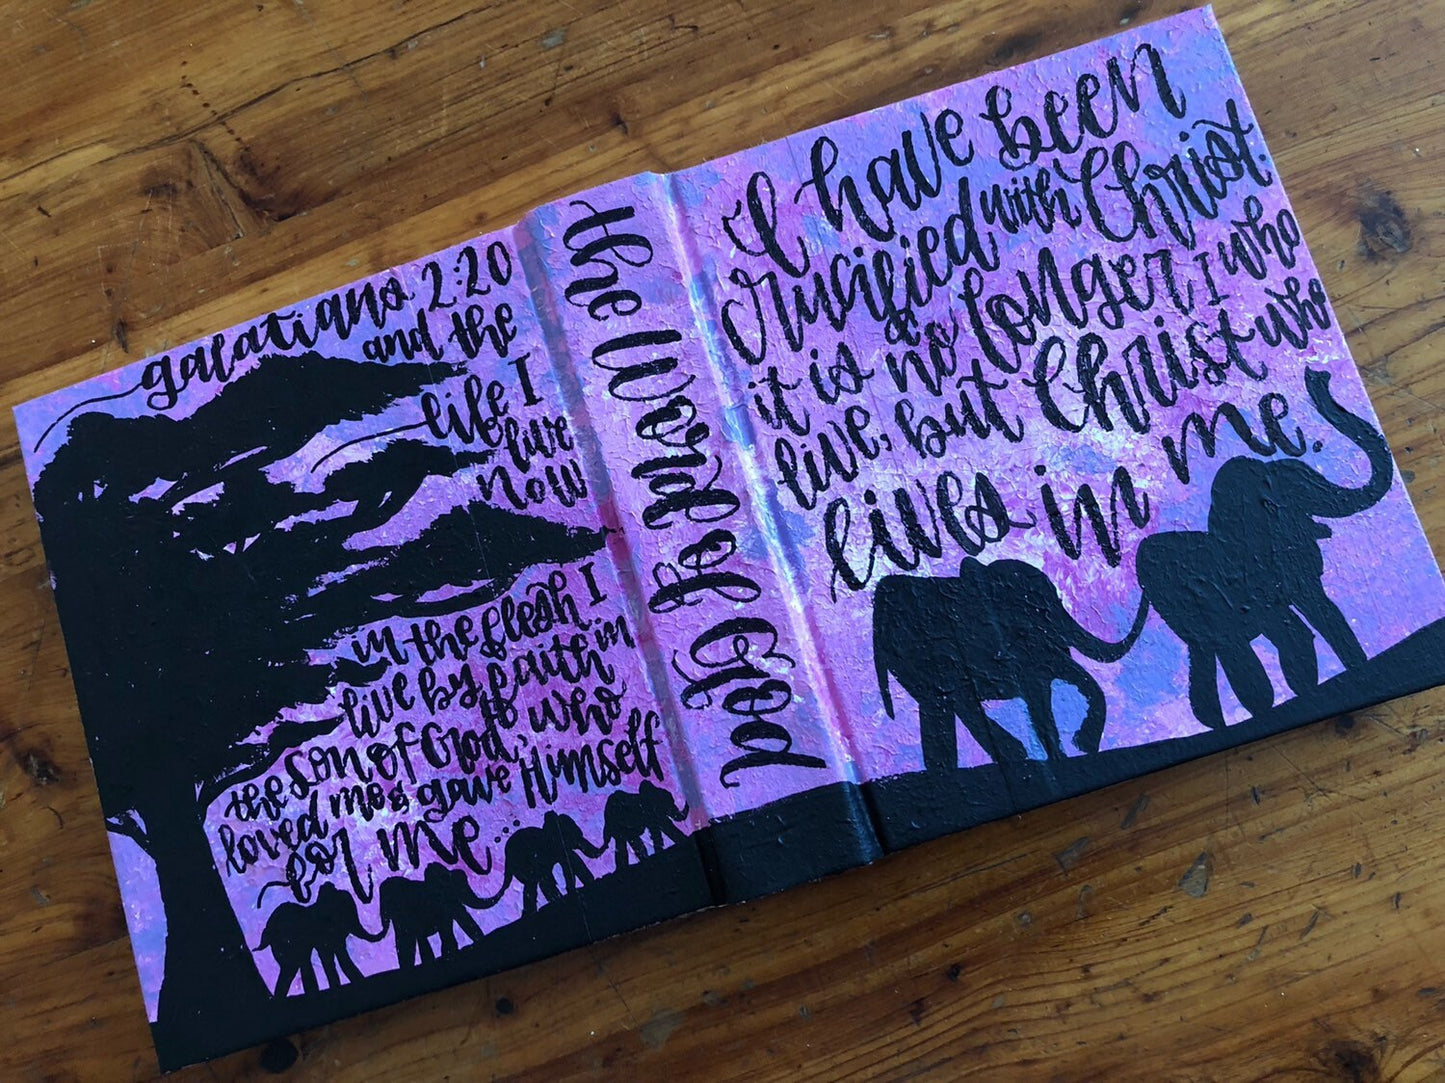 I have been
crucified with Christ.
it is no longer I who
live, but Christ who
lives in me.
the Word of God
galatians 2:20
and the
life I
live
now
in the flesh I
live by faith in
the son of God, who
loved me & gave Himself
for me...